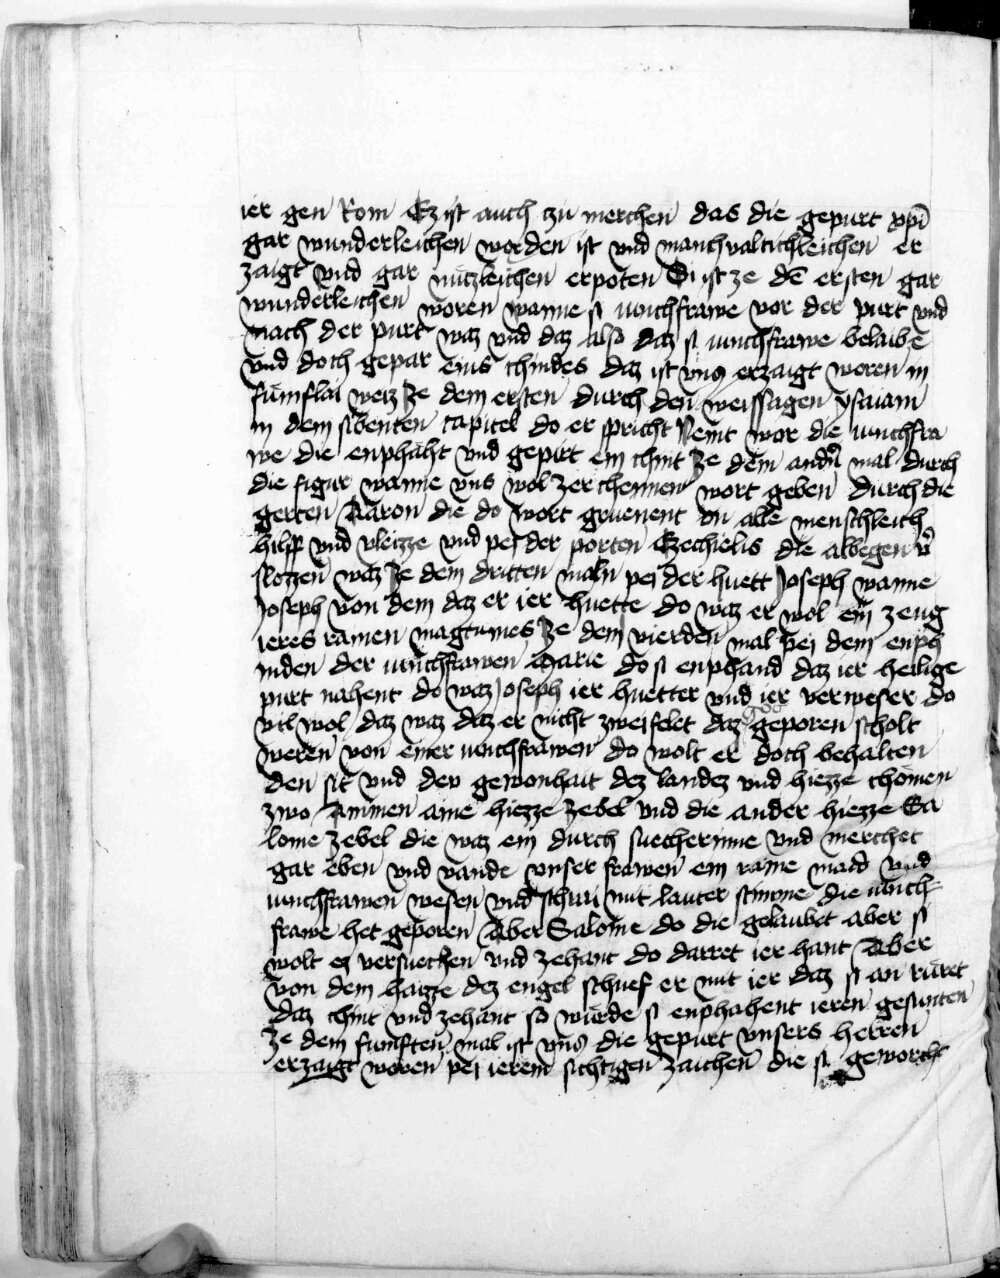 ier gen Rom Ez ist auch zu merchen das die gepurt xpi
gar wunderleichen worden ist vnd manchualtichleichen er
zaigt vnd gar nutzleichen erpoten Si ist ze dē ersten gar
wunderleichen woren wanne si iunchfrawe vor der purt vnd
nach der purt waz vnd daz also daz si iunchfrawe belaibē
vnd doch gepar eins chindes daz ist vns erzaigt woren in
fumflai weiz Ze dem ersten durch den weissagen ysaiam
in dem sibenten capitel do er spricht Nemt wor die iunchfra
we die enphaht vnd gepirt ein chint Ze dem andn mal durch
die figur wanne vns wol zerchennen wort geben durch die
gerten Aaron die do wort gruenent an alle menschleich
hilff vnd vleizze vnd pei der porten Ezechielis die albegen v̄
slozzen waz Ze dem dritten maln pei der huett Joseph wanne
Joseph von dem daz er ier huette do waz er wol ein zeug
ieres rainen magtumes Ze dem vierden mal pei dem enph
inden der iunchfrawen Marie do si enphand daz ier heilige
purt nahent do waz Joseph ier huetter vnd ier verweser do
vil wol daz waz daz er nicht zweifelet daz got geporen scholt
weren von einer iunchfrawen do wolt er doch behalten
den sit vnd dev gewonhait dez landez vnd hiezze chomen
zwo Ammen aine hiezze Zebel vnd die ander hiezze Sa
lome Zebel die waz ein durch suecherinne vnd merchet
gar eben vnd vande vnser frawen ein raine maid vnd
iunchfrawen wesen vnd schrai mit lauter stimme die iunch
frawe het geporen Aber Salome do die gelaubet aber si
wolt ez versuechen vnd zehant do darret ier hant Aber
von dem haizze dez engel schuef er mit ier daz si an ruret
daz chint vnd zehant so wurde si enphahent ieren gesunten
Ze dem fumften mal ist vns die gepurt vnsers herren
erzaigt woren pei ierem sichtigen zaichen die si geworcht